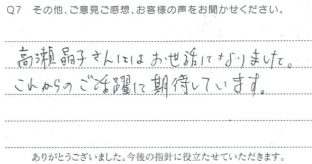 Q7 その他、ご意見ご感想、お客様の声をお聞かせください。
高瀬晶子さんにはお世話になりました。
これからのご活躍に期待しています。
ありがとうございました。今後の指針に役立たせていただきます。